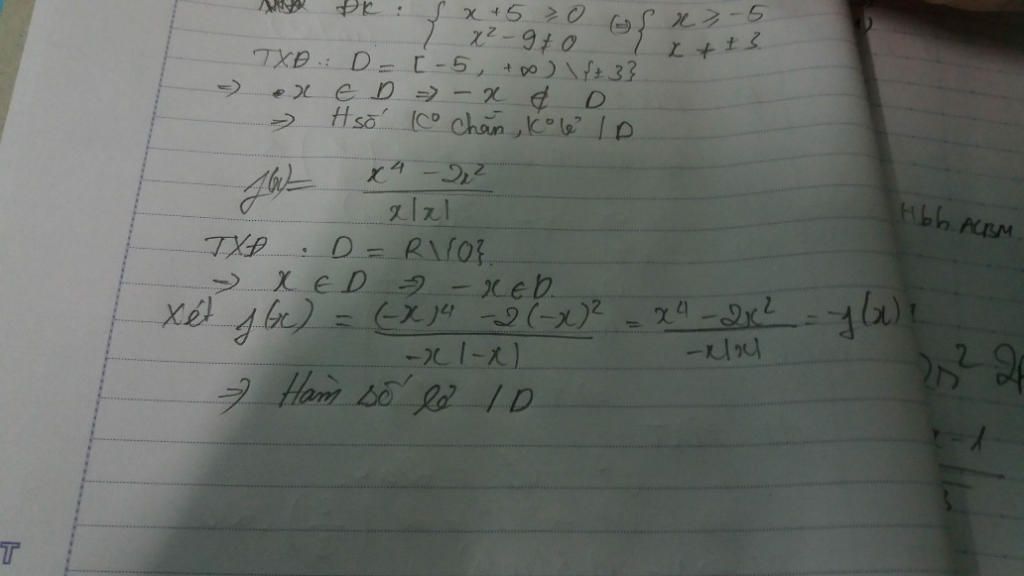 ĐK : { x + 5 ⩾ 0 (=) { x ⩾ -5
x² - 9 ≠ 0 x ≠ ± 3
TXĐ : D = [-5, +∞) \ {±3}
=> x ∈ D => -x ∉ D
=> H số K° chẵn, K° lẻ / D
f(x) = x⁴ - 2x²
x|x|
TXĐ : D = R\{0}.
=> x ∈ D => -x ∈ D.
Xét f(x) = (-x)⁴ - 2(-x)² = x⁴ - 2x² = -f(x)
-x|-x| -x|x|
=> Hàm số lẻ / D
Hbh ACBM
x-1
3
T